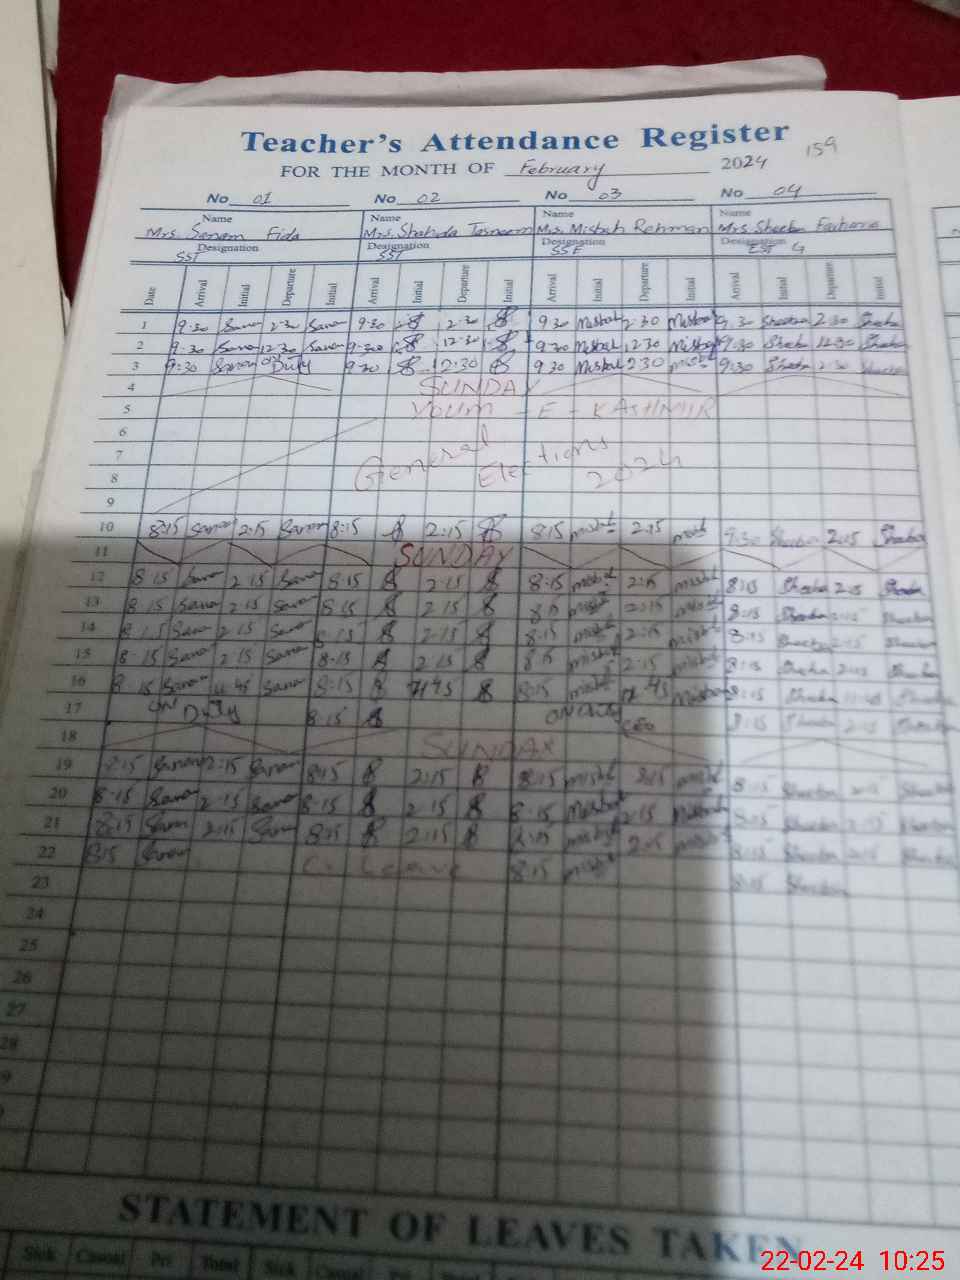 Teacher's Attendance Register
FOR THE MONTH OF February 2024 159
No 01 No 02 No 03 No 04
Name Name Name Name
Mrs. Sanam Fida Mrs. Shahida Tasneem Mrs. Misbah Rehman Mrs. Sheeba
Designation Designation Designation Designation
SST SST SSE EST G
Date Arrival Initial Departure Initial Arrival Initial Departure Initial Arrival Initial Departure Initial Arrival Initial Departure Initial
1 9:30 Sanam 2:30 Sanam 9:30 2:30 9 30 Misbah 2:30 Misbah 9:30 Sheeba 2:30 Sheeba
2 9:30 Sanam 12:30 Sanam 9:30 12:30 9 30 Misbah 12 30 Misbah 9:30 Sheeba 12:30 Sheeba
3 9:30 Sanam on Duty 9 30 2:30 9 30 Misbah 2 30 9:30 Sheeba 2:30 Sheeba
4 SUNDAY
5 YOUM - E - KASHMIR
6
7 General Elections 2024
8
9
10 8:15 Sanam 2:15 Sanam 8:15 2:15 8:15 misbah 2:15 misbah 9:30 Sheeba 2:15 Sheeba
11 SUNDAY
12 8:15 Sanam 2:15 Sanam 8:15 2:15 8:15 misbah 2:15 misbah 8:15 Sheeba 2:15 Sheeba
13 8:15 Sanam 2:15 Sanam 8:15 2:15 8:15 misbah 2:15 misbah 8:15 Sheeba 2:15 Sheeba
14 8:15 Sanam 2:15 Sanam 8:15 2:15 8:15 misbah 2:15 misbah 8:15 2:15
15 8:15 Sanam 2:15 Sanam 8:15 2:15 8:15 misbah 2:15 misbah 8:15 Sheeba 2:15 Sheeba
16 8:15 Sanam 11:45 Sanam 8:15 8:15 misbah Misbah 8:15 Sheeba 11:45 Sheeba
17 ON Duty 8:15 ON Duty CEO 8:15 Sheeba 2:15
18 SUNDAY
19 8:15 Sanam 2:15 Sanam 8:15 2:15 8:15 misbah misbah 8:15 Sheeba 2:15 Sheeba
20 8:15 Sanam 2:15 Sanam 8:15 2:15 8:15 Misbah 2:15 Misbah 8:15 Sheeba
21 8:15 Sanam 2:15 Sanam 8:15 2:15 8:15 misbah 2:15 misbah 8:15 Sheeba 2:15 Sheeba
22 8:15 Sanam C. Leave 8:15 misbah 8:15 Sheeba
23
24
25
26
27
28
STATEMENT OF LEAVES TAKEN
Sick Casual Pri Total Sick Casual
22-02-24 10:25